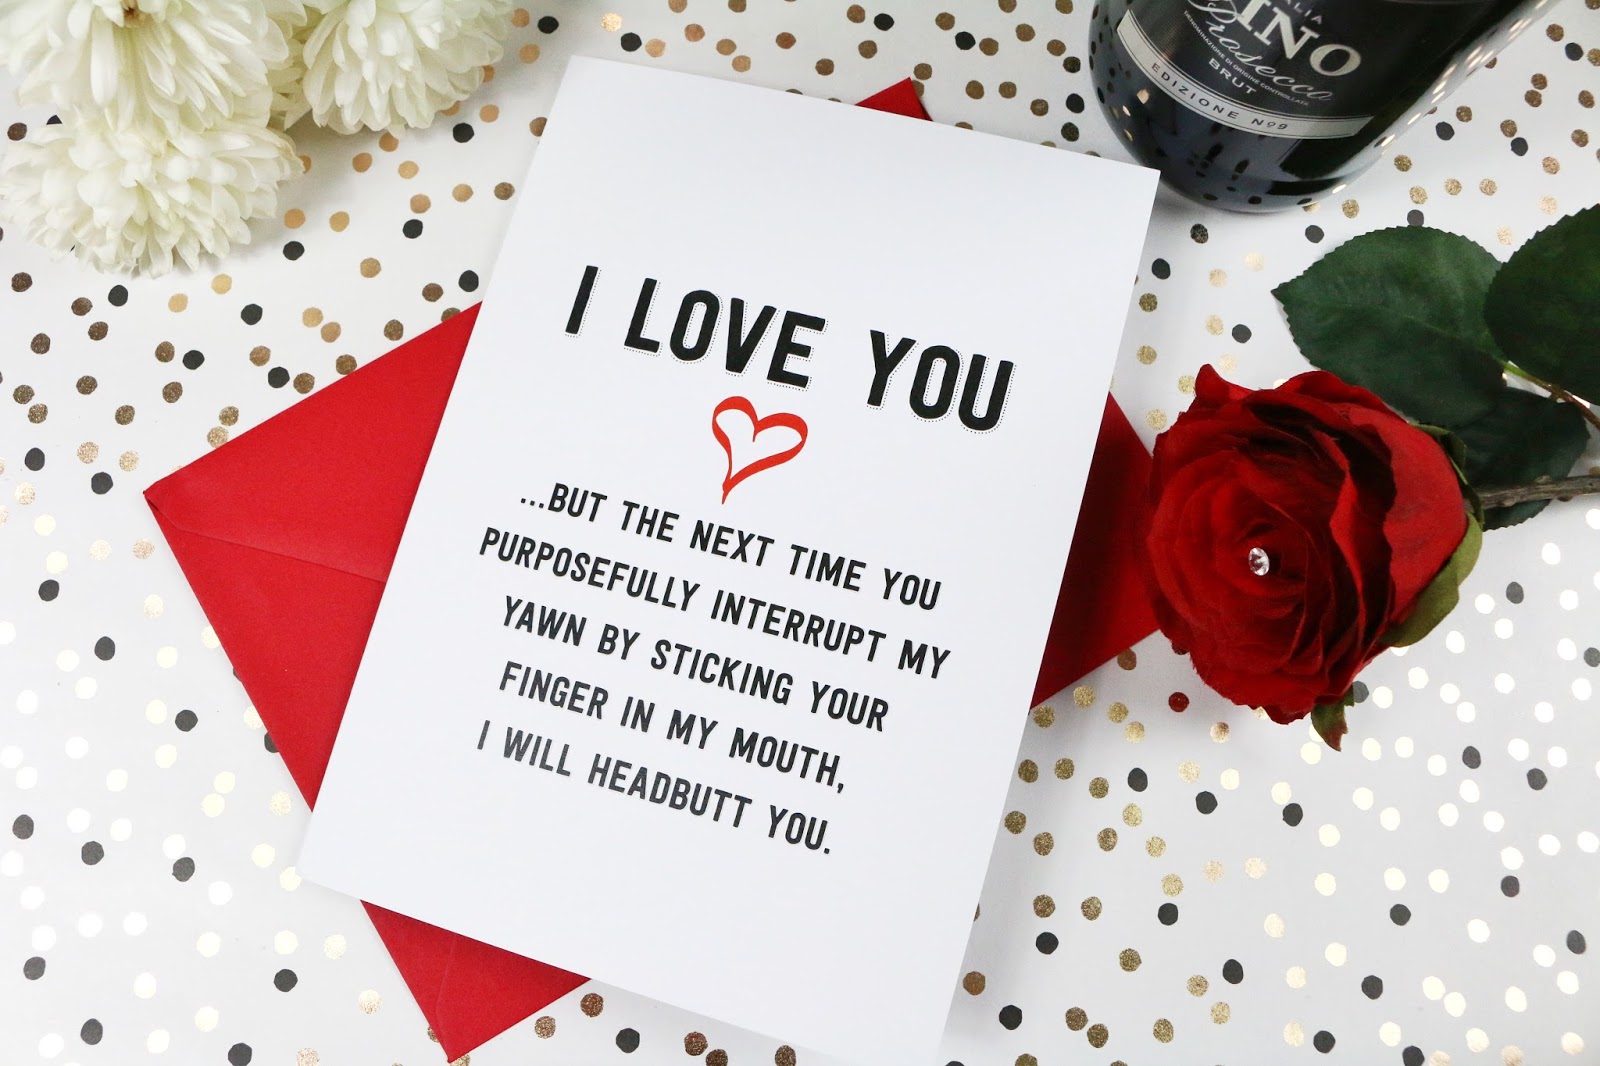 INO
Prosecco
DENOMINAZIONE DI ORIGINE CONTROLLATA
BRUT
EDIZIONE Nº9
I LOVE YOU
...BUT THE NEXT TIME YOU
PURPOSEFULLY INTERRUPT MY
YAWN BY STICKING YOUR
FINGER IN MY MOUTH,
I WILL HEADBUTT YOU.